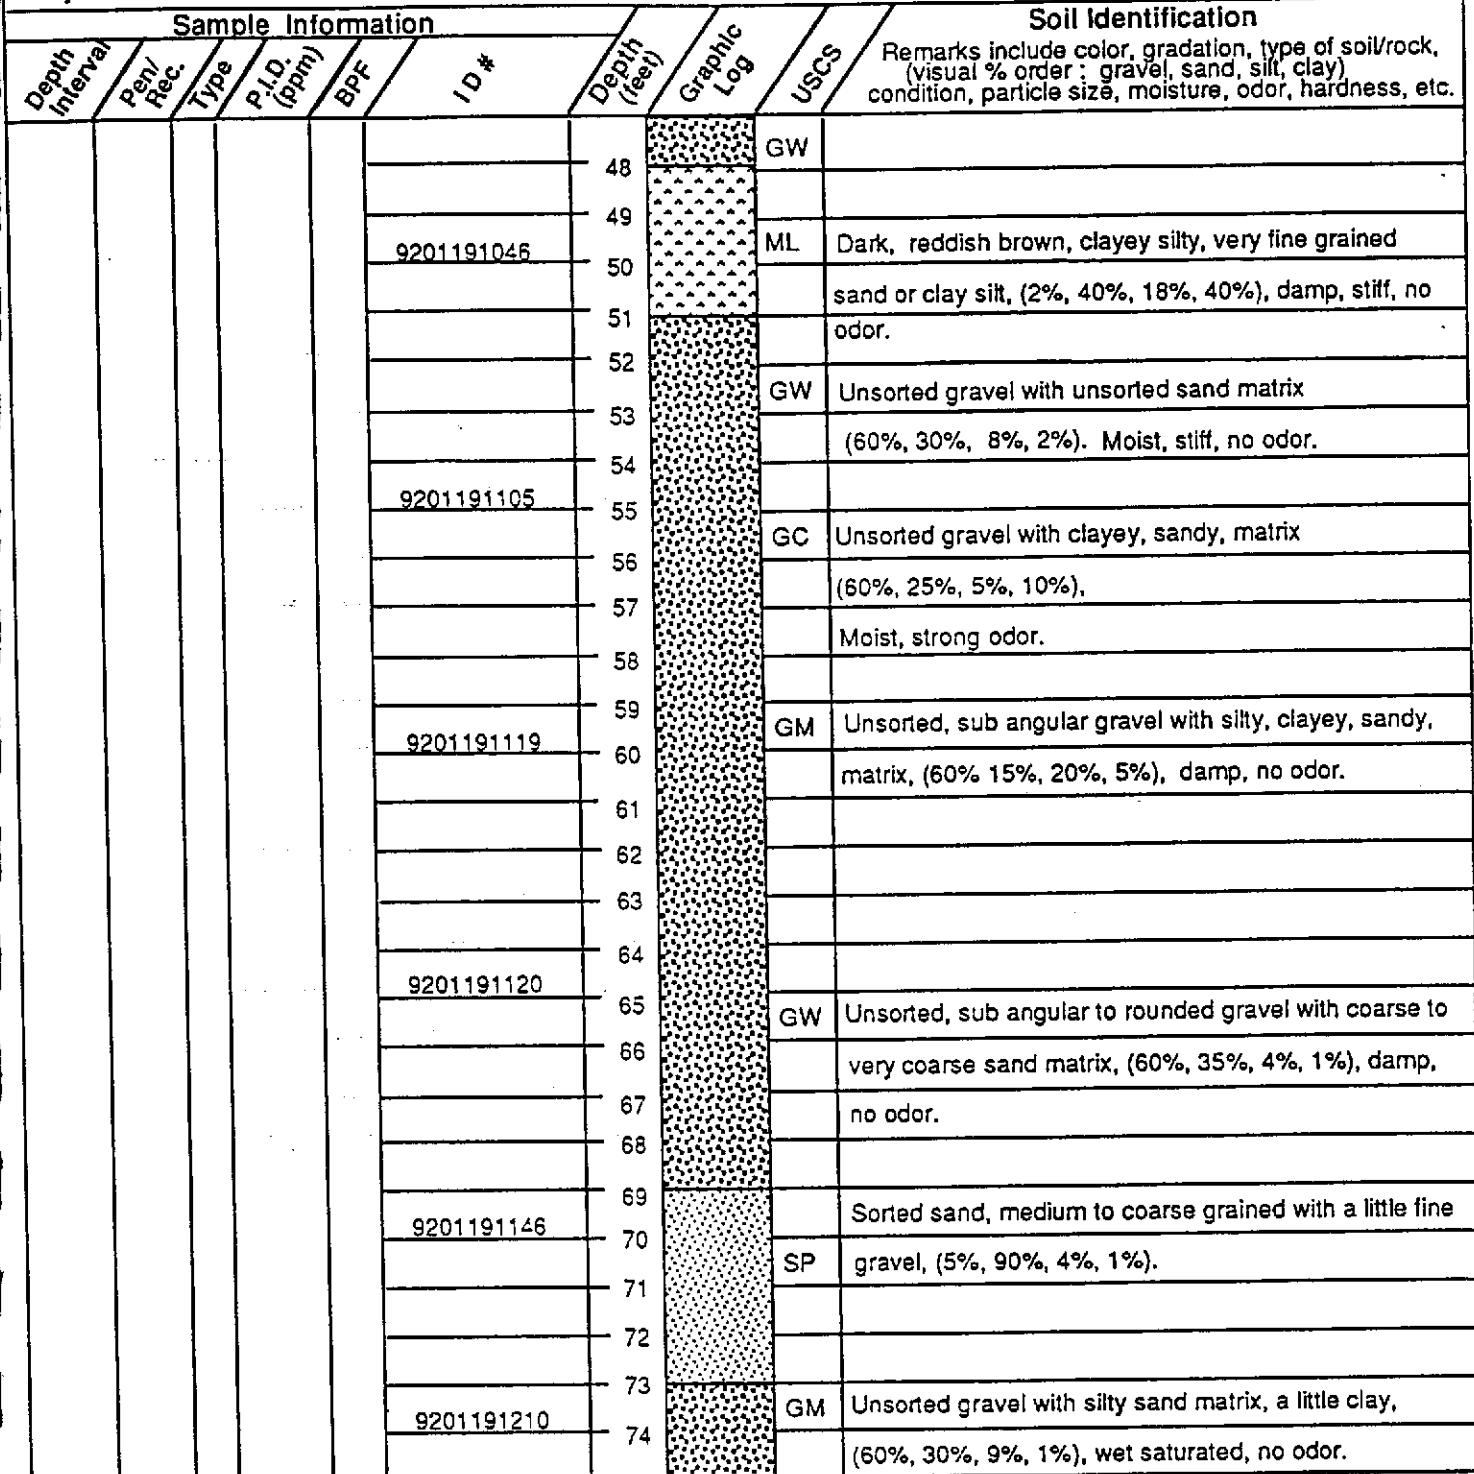 Sample Information
Soil Identification
Remarks include color, gradation, type of soil/rock,
(visual % order : gravel, sand, silt, clay)
condition, particle size, moisture, odor, hardness, etc.
Depth Interval
Pen/ Rec.
Type
P.I.D. (ppm)
BPF
ID #
Depth (feet)
Graphic Log
USCS
GW
48
49
9201191046
ML Dark, reddish brown, clayey silty, very fine grained
50
sand or clay silt, (2%, 40%, 18%, 40%), damp, stiff, no
51
odor.
52
GW Unsorted gravel with unsorted sand matrix
53
(60%, 30%, 8%, 2%). Moist, stiff, no odor.
54
9201191105
55
GC Unsorted gravel with clayey, sandy, matrix
56
(60%, 25%, 5%, 10%),
57
Moist, strong odor.
58
59
GM Unsorted, sub angular gravel with silty, clayey, sandy,
9201191119
60
matrix, (60% 15%, 20%, 5%), damp, no odor.
61
62
63
64
9201191120
65
GW Unsorted, sub angular to rounded gravel with coarse to
66
very coarse sand matrix, (60%, 35%, 4%, 1%), damp,
67
no odor.
68
69
Sorted sand, medium to coarse grained with a little fine
9201191146
70
SP gravel, (5%, 90%, 4%, 1%).
71
72
73
GM Unsorted gravel with silty sand matrix, a little clay,
9201191210
74
(60%, 30%, 9%, 1%), wet saturated, no odor.